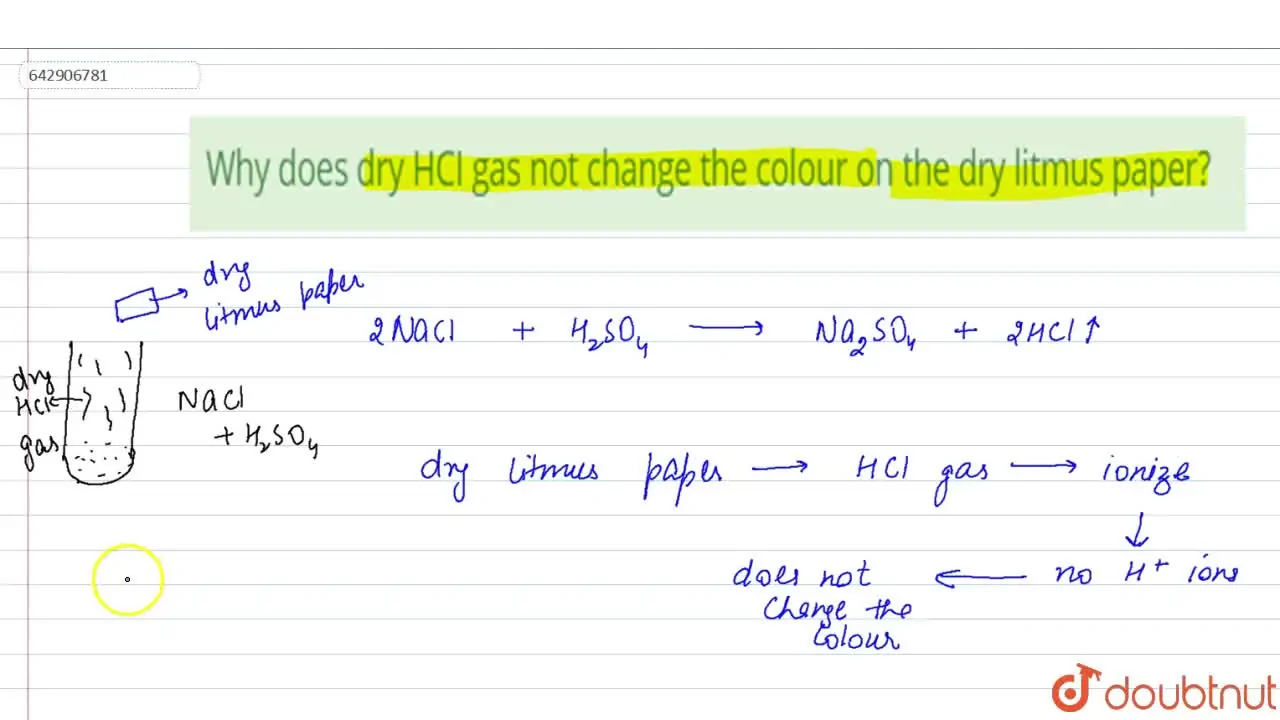 642906781
Why does dry HCl gas not change the colour on the dry litmus paper?
dry
litmus paper
2NaCl + H₂SO₄ → Na₂SO₄ + 2HCl↑
dry
HCl
gas
NaCl
+ H₂SO₄
dry litmus paper → HCl gas → ionize
↓
does not ← no H⁺ ions
change the
colour
doubtnut